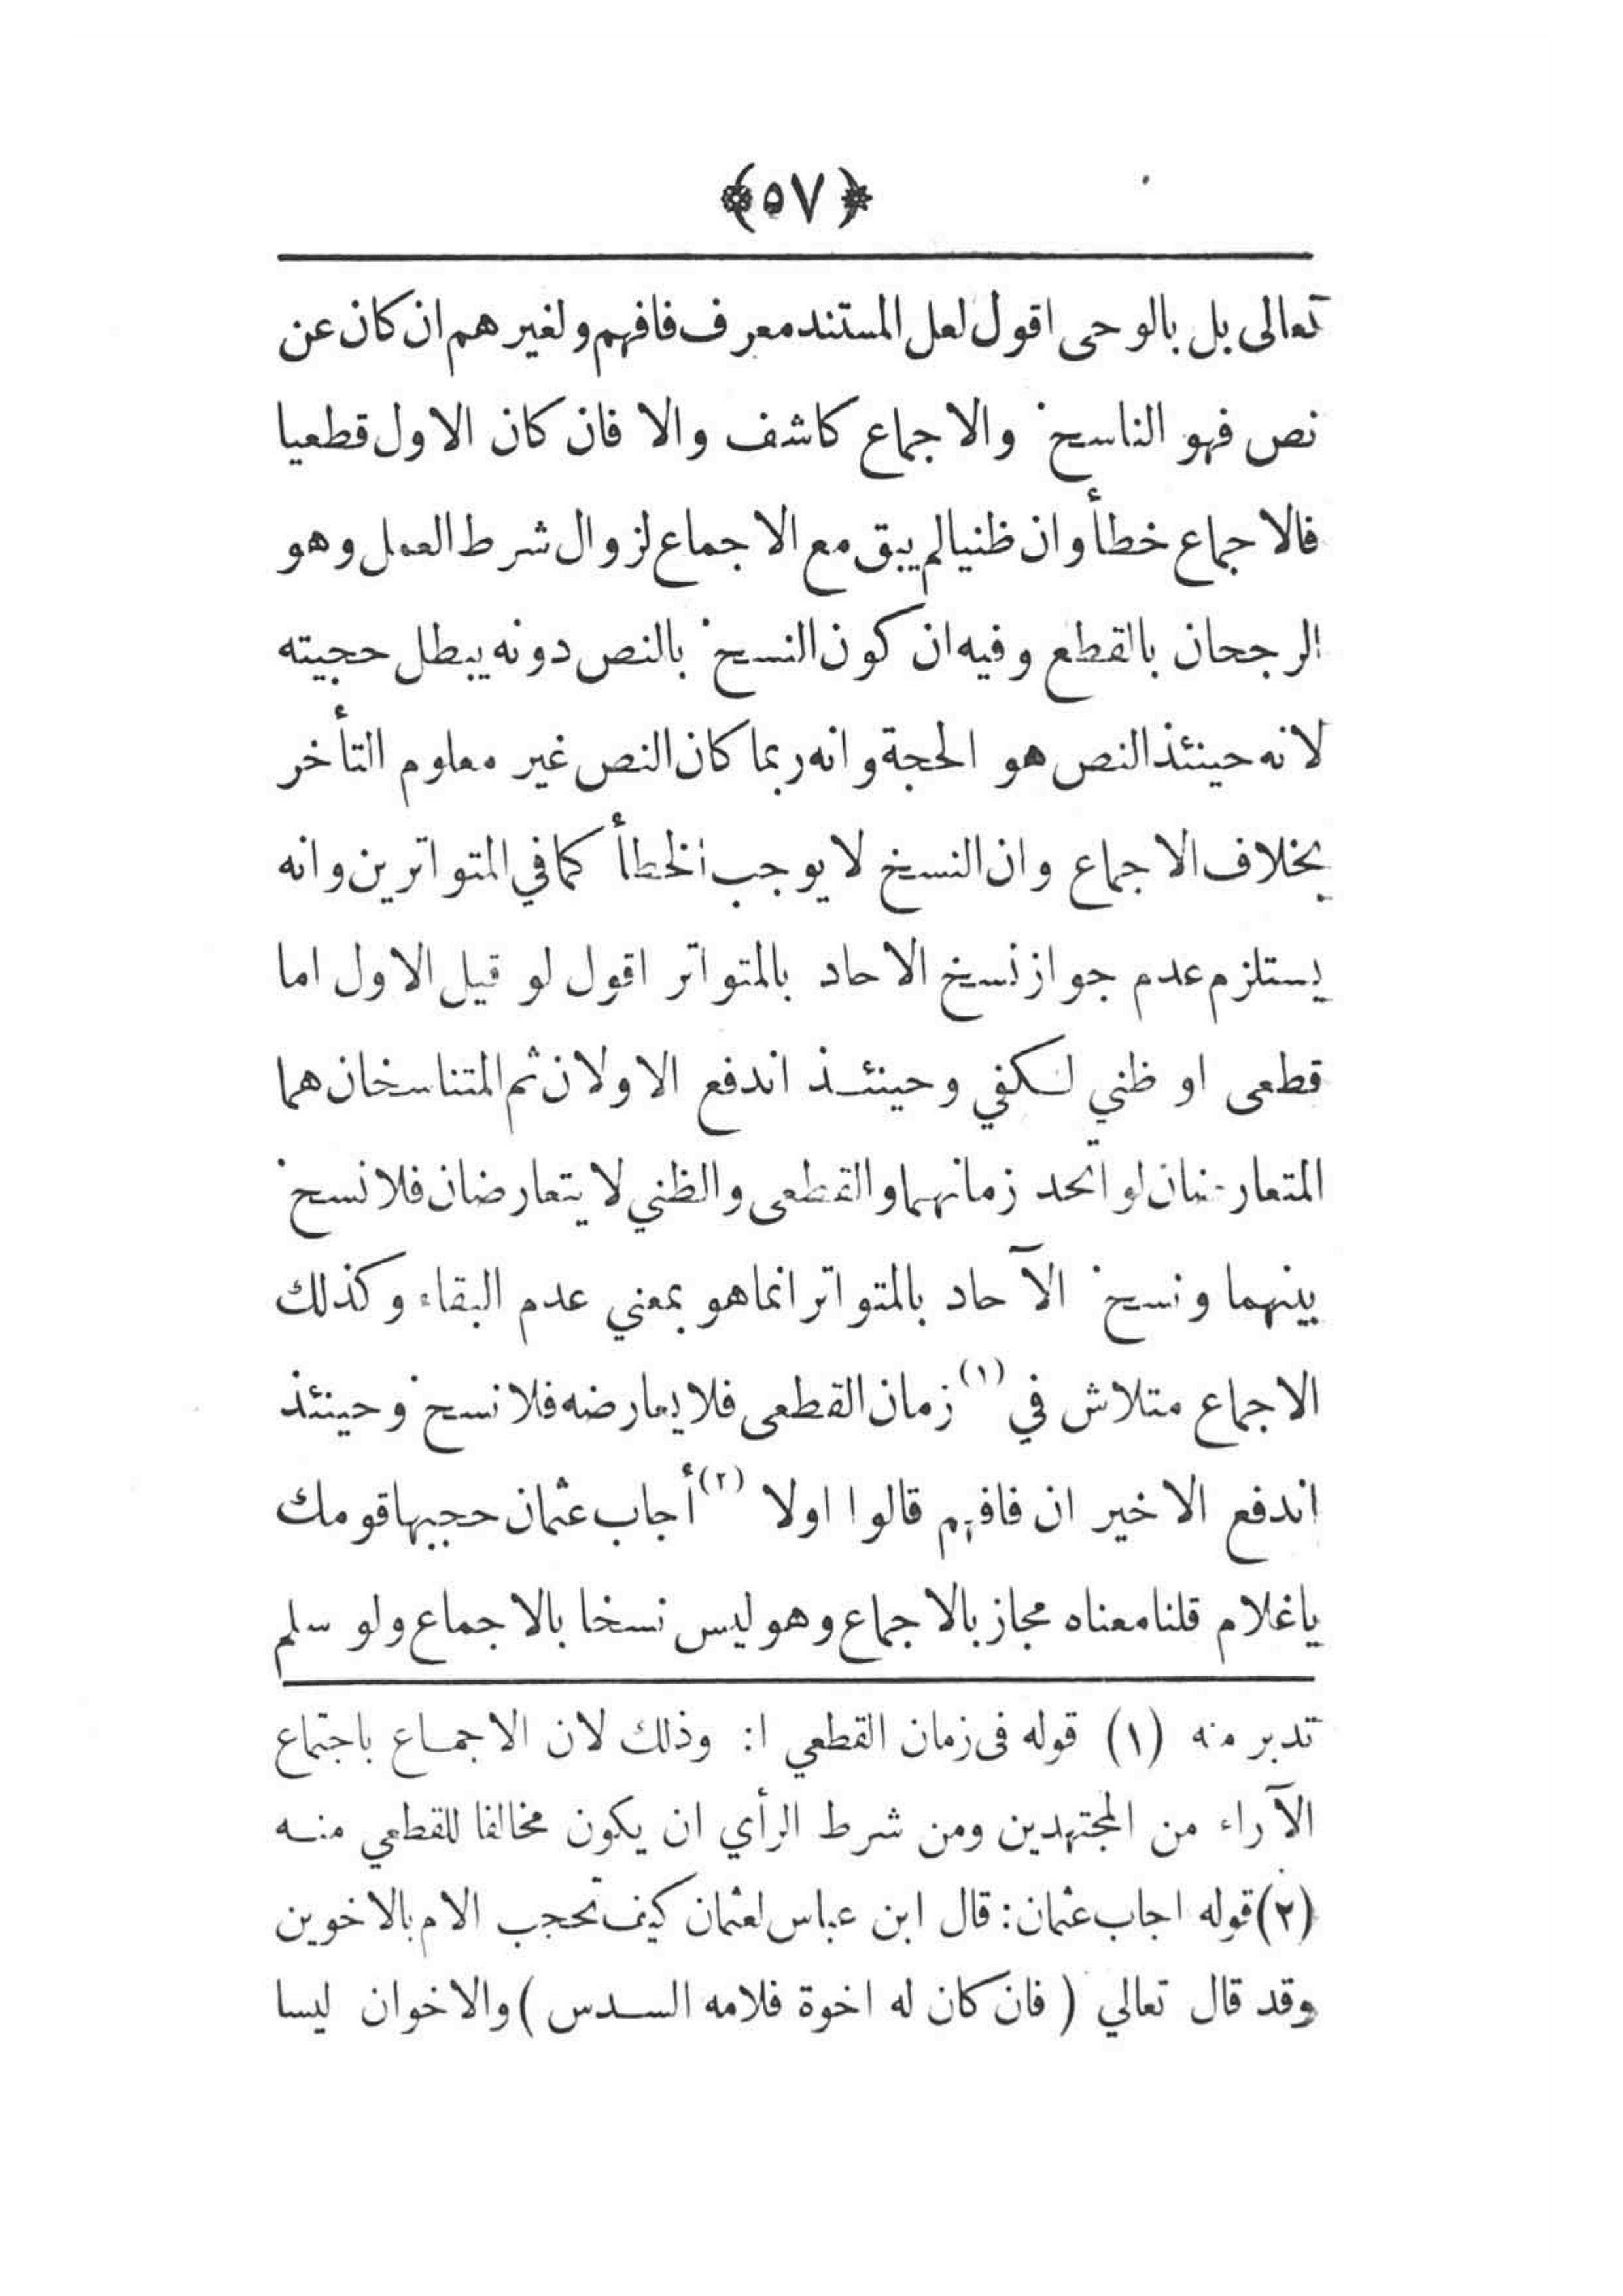 ﴿٥٧﴾
تعالى بل بالوحى اقول لعل المستند معرف فافهم ولغيرهم ان كان عن
نص فهو الناسخ والاجماع كاشف والا فان كان الاول قطعيا
فالاجماع خطأ وان ظنيا لم يبق مع الاجماع لزوال شرط العمل وهو
الرجحان بالقطع وفيه ان كون النسخ بالنص دونه يبطل حجيته
لانه حينئذ النص هو الحجة وانه ربما كان النص غير معلوم التأخر
بخلاف الاجماع وان النسخ لا يوجب الخطأ كما في المتواترين وانه
يستلزم عدم جواز نسخ الاحاد بالمتواتر اقول لو قيل الاول اما
قطعى او ظني لكفي وحينئذ اندفع الاولان ثم المتناسخان هما
المتعارضان لو اتحد زمانهما والقطعى والظني لا يتعارضان فلا نسخ
بينهما ونسخ الآحاد بالمتواتر انما هو بمعني عدم البقاء وكذلك
الاجماع متلاش في (١) زمان القطعى فلا يعارضه فلا نسخ وحينئذ
اندفع الاخير ان فافهم قالوا اولا (٢) أجاب عثمان حجبها قومك
ياغلام قلنا معناه مجاز بالاجماع وهو ليس نسخا بالاجماع ولو سلم
تدبر منه (١) قوله فى زمان القطعي ا: وذلك لان الاجمـاع باجتماع
الآراء من المجتهدين ومن شرط الرأي ان يكون مخالفا للقطعي منـه
(٢) قوله اجاب عثمان: قال ابن عباس لعثمان كيف تحجب الام بالاخوين
وقد قال تعالي ( فان كان له اخوة فلامه السـدس ) والاخوان ليسا